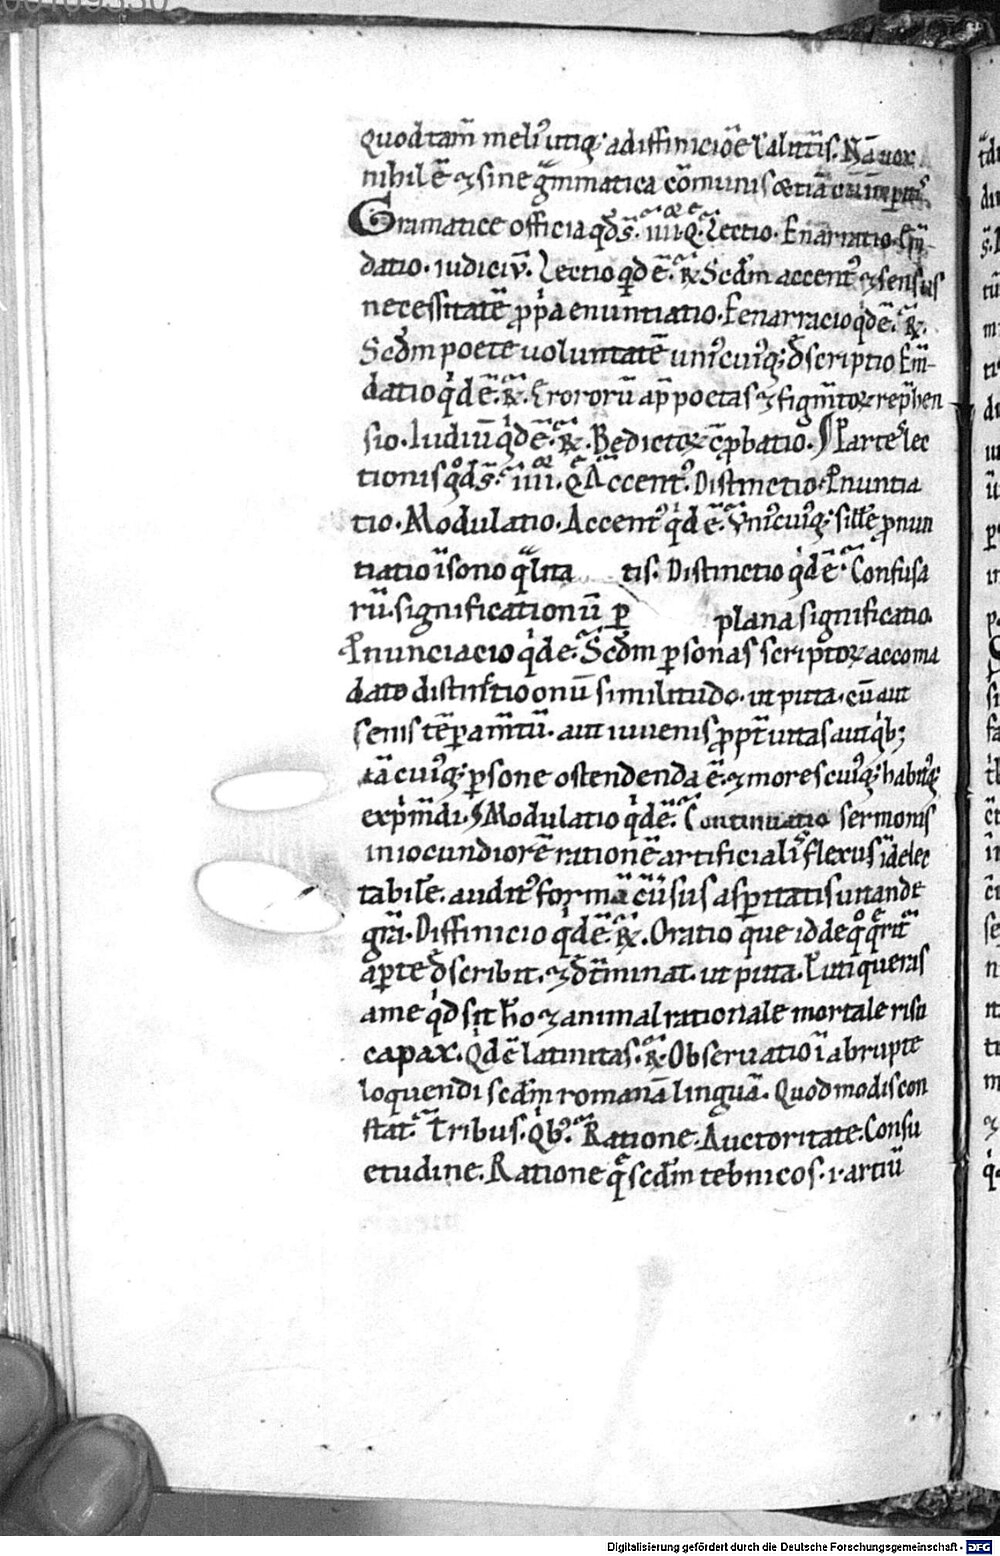 quod tam̄ meli᷒ utiq; ad diffinicioē l̄aluttis. Nā vox
nihil ē ⁊ sine gͣmmatica cōmunis ... etiā
Gramatice officia qͦd s̄. iiii. Q̄. Lectio. Enarratio. Em̄
datio. iudiciū. Lectio qͥd ē. R̄. Scd̄m accent᷒ ⁊ sensus
necessitatē ꝓpͥa enuntiatio. Eenarracio qͥd ē. R̄.
Scd̄m poete voluntatē uni᷒cui᷒q; d̄scriptio Em̄
datio qͥd ē. R̄. Erororū ap̄ poetas ⁊ figm̄toꝝ rep̄hen
sio. Iudiū qͥd ē. R̄. Bn̄dictoꝝ cꝓbatio. Parte lec
tionis qͦd s̄. iiii. Q̄ Accent᷒. Distinctio. Pnuntia
tio. Modulatio. Accent᷒ qͥd ē. Vni᷒cui᷒q; sill̄e ꝓnun
tiatio ī sono qͣlita tis. Distinctio qͥd ē. Confusa
rū significationū ꝑ plana significatio.
Pnunciacio qͥd ē. Scd̄m ꝑsonas scriptoꝝ accoma
dato distinctioonū similitudo. ut puta. cū aut
senis tēꝑam̄tū. aut iuvenis ꝓpt̄uitas aut qͥb;
tā cui᷒q; ꝑsone ostendenda ē. ⁊ mores cui᷒q; habit᷒q;
expͥm̄di. Modulatio qͥd ē. Continuatio sermonis
in iocundiorē rationē artificialis flexus ī delec
tabilē. audit᷒ formā cūsus asꝑitatis uitande
grā. Diffinicio qͥd ē. R̄. Oratio que id de qͦ qͣrit̄
aꝑte d̄scribit. ⁊ d̄t̄minat. ut puta. Si utiqueras
a me qͥd sit hō ⁊ animal rationale mortale risu
capax. Qͥd ē latinitas. R̄. Observatio ī abrupte
loquendi scd̄m romanā linguā. Quod modis con
stat. Tribus. Qͥb᷒. Ratione. Auctoritate. Consu
etudine. Ratione qͣ scd̄m tehnicos. i. artiū
Digitalisierung gefördert durch die Deutsche Forschungsgemeinschaft - DFG